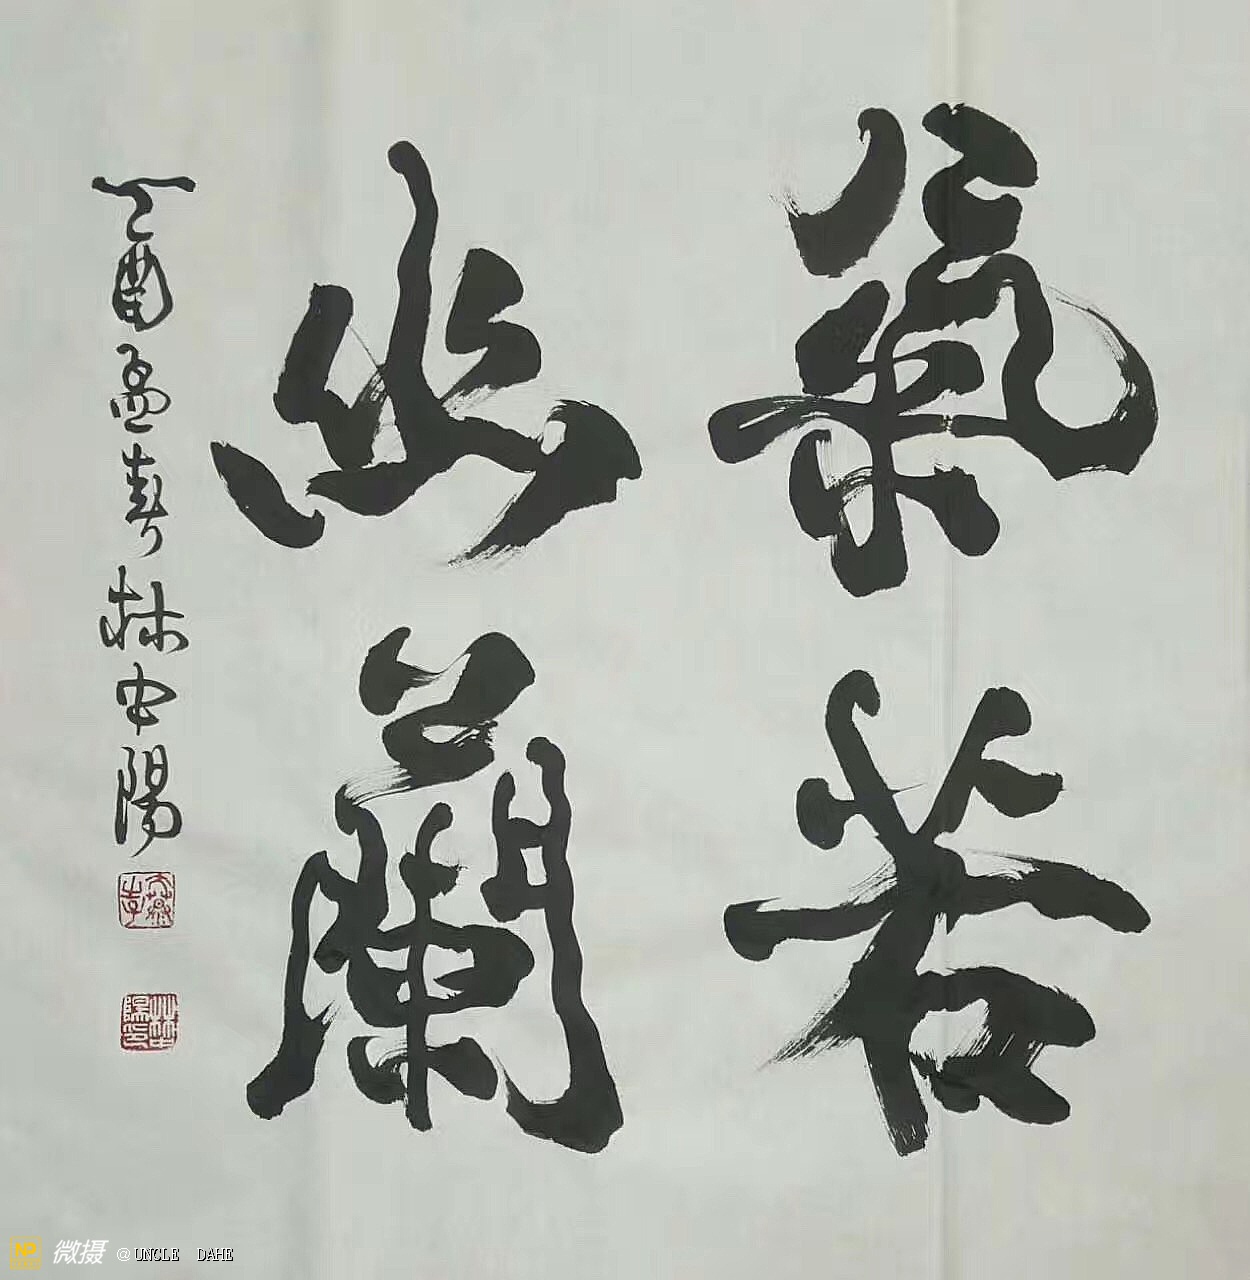 氣若
幽蘭
丁酉孟春林中陽
林中陽印
微摄 @UNCLE DAHE